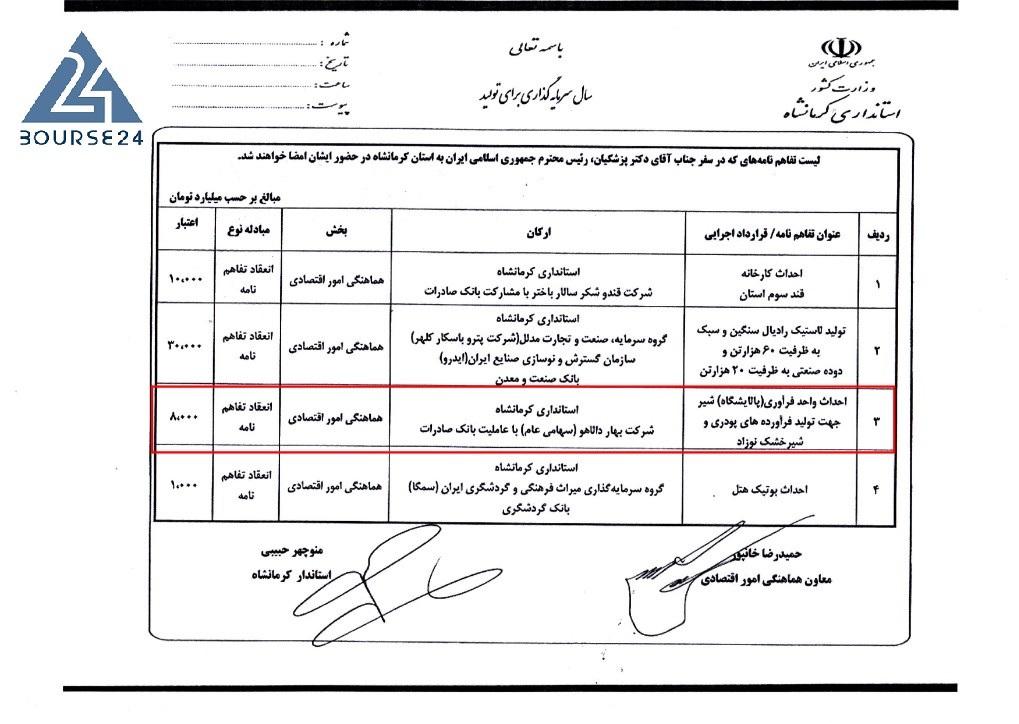 BOURSE24
جمهوری اسلامی ایران
وزارت کشور
استانداری کرمانشاه
باسمه تعالی
سال سرمایه‌گذاری برای تولید
شماره :
تاریخ :
ساعت :
پیوست :
لیست تفاهم نامه‌های که در سفر جناب آقای دکتر پزشکیان، رئیس محترم جمهوری اسلامی ایران به استان کرمانشاه در حضور ایشان امضا خواهند شد.
مبالغ بر حسب میلیارد تومان
ردیف عنوان تفاهم نامه/ قرارداد اجرایی ارکان بخش مبادله نوع اعتبار
۱
احداث کارخانه
قند سوم استان
استانداری کرمانشاه
شرکت قندو شکر سالار باختر با مشارکت بانک صادرات
هماهنگی امور اقتصادی
انعقاد تفاهم
نامه
۱۰،۰۰۰
۲
تولید لاستیک رادیال سنگین و سبک
به ظرفیت ۶۰ هزارتن و
دوده صنعتی به ظرفیت ۲۰ هزارتن
استانداری کرمانشاه
گروه سرمایه، صنعت و تجارت مدلل(شرکت پترو باسکار کلهر)
سازمان گسترش و نوسازی صنایع ایران(ایدرو)
بانک صنعت و معدن
هماهنگی امور اقتصادی
انعقاد تفاهم
نامه
۳۰،۰۰۰
۳
احداث واحد فرآوری(پالایشگاه) شیر
جهت تولید فرآورده های پودری و
شیرخشک نوزاد
استانداری کرمانشاه
شرکت بهار دالاهو (سهامی عام) با عاملیت بانک صادرات
هماهنگی امور اقتصادی
انعقاد تفاهم
نامه
۸،۰۰۰
۴
احداث بوتیک هتل
استانداری کرمانشاه
گروه سرمایه‌گذاری میراث فرهنگی و گردشگری ایران (سمگا)
بانک گردشگری
هماهنگی امور اقتصادی
انعقاد تفاهم
نامه
۱،۰۰۰
حمیدرضا خانپور
معاون هماهنگی امور اقتصادی
منوچهر حبیبی
استاندار کرمانشاه